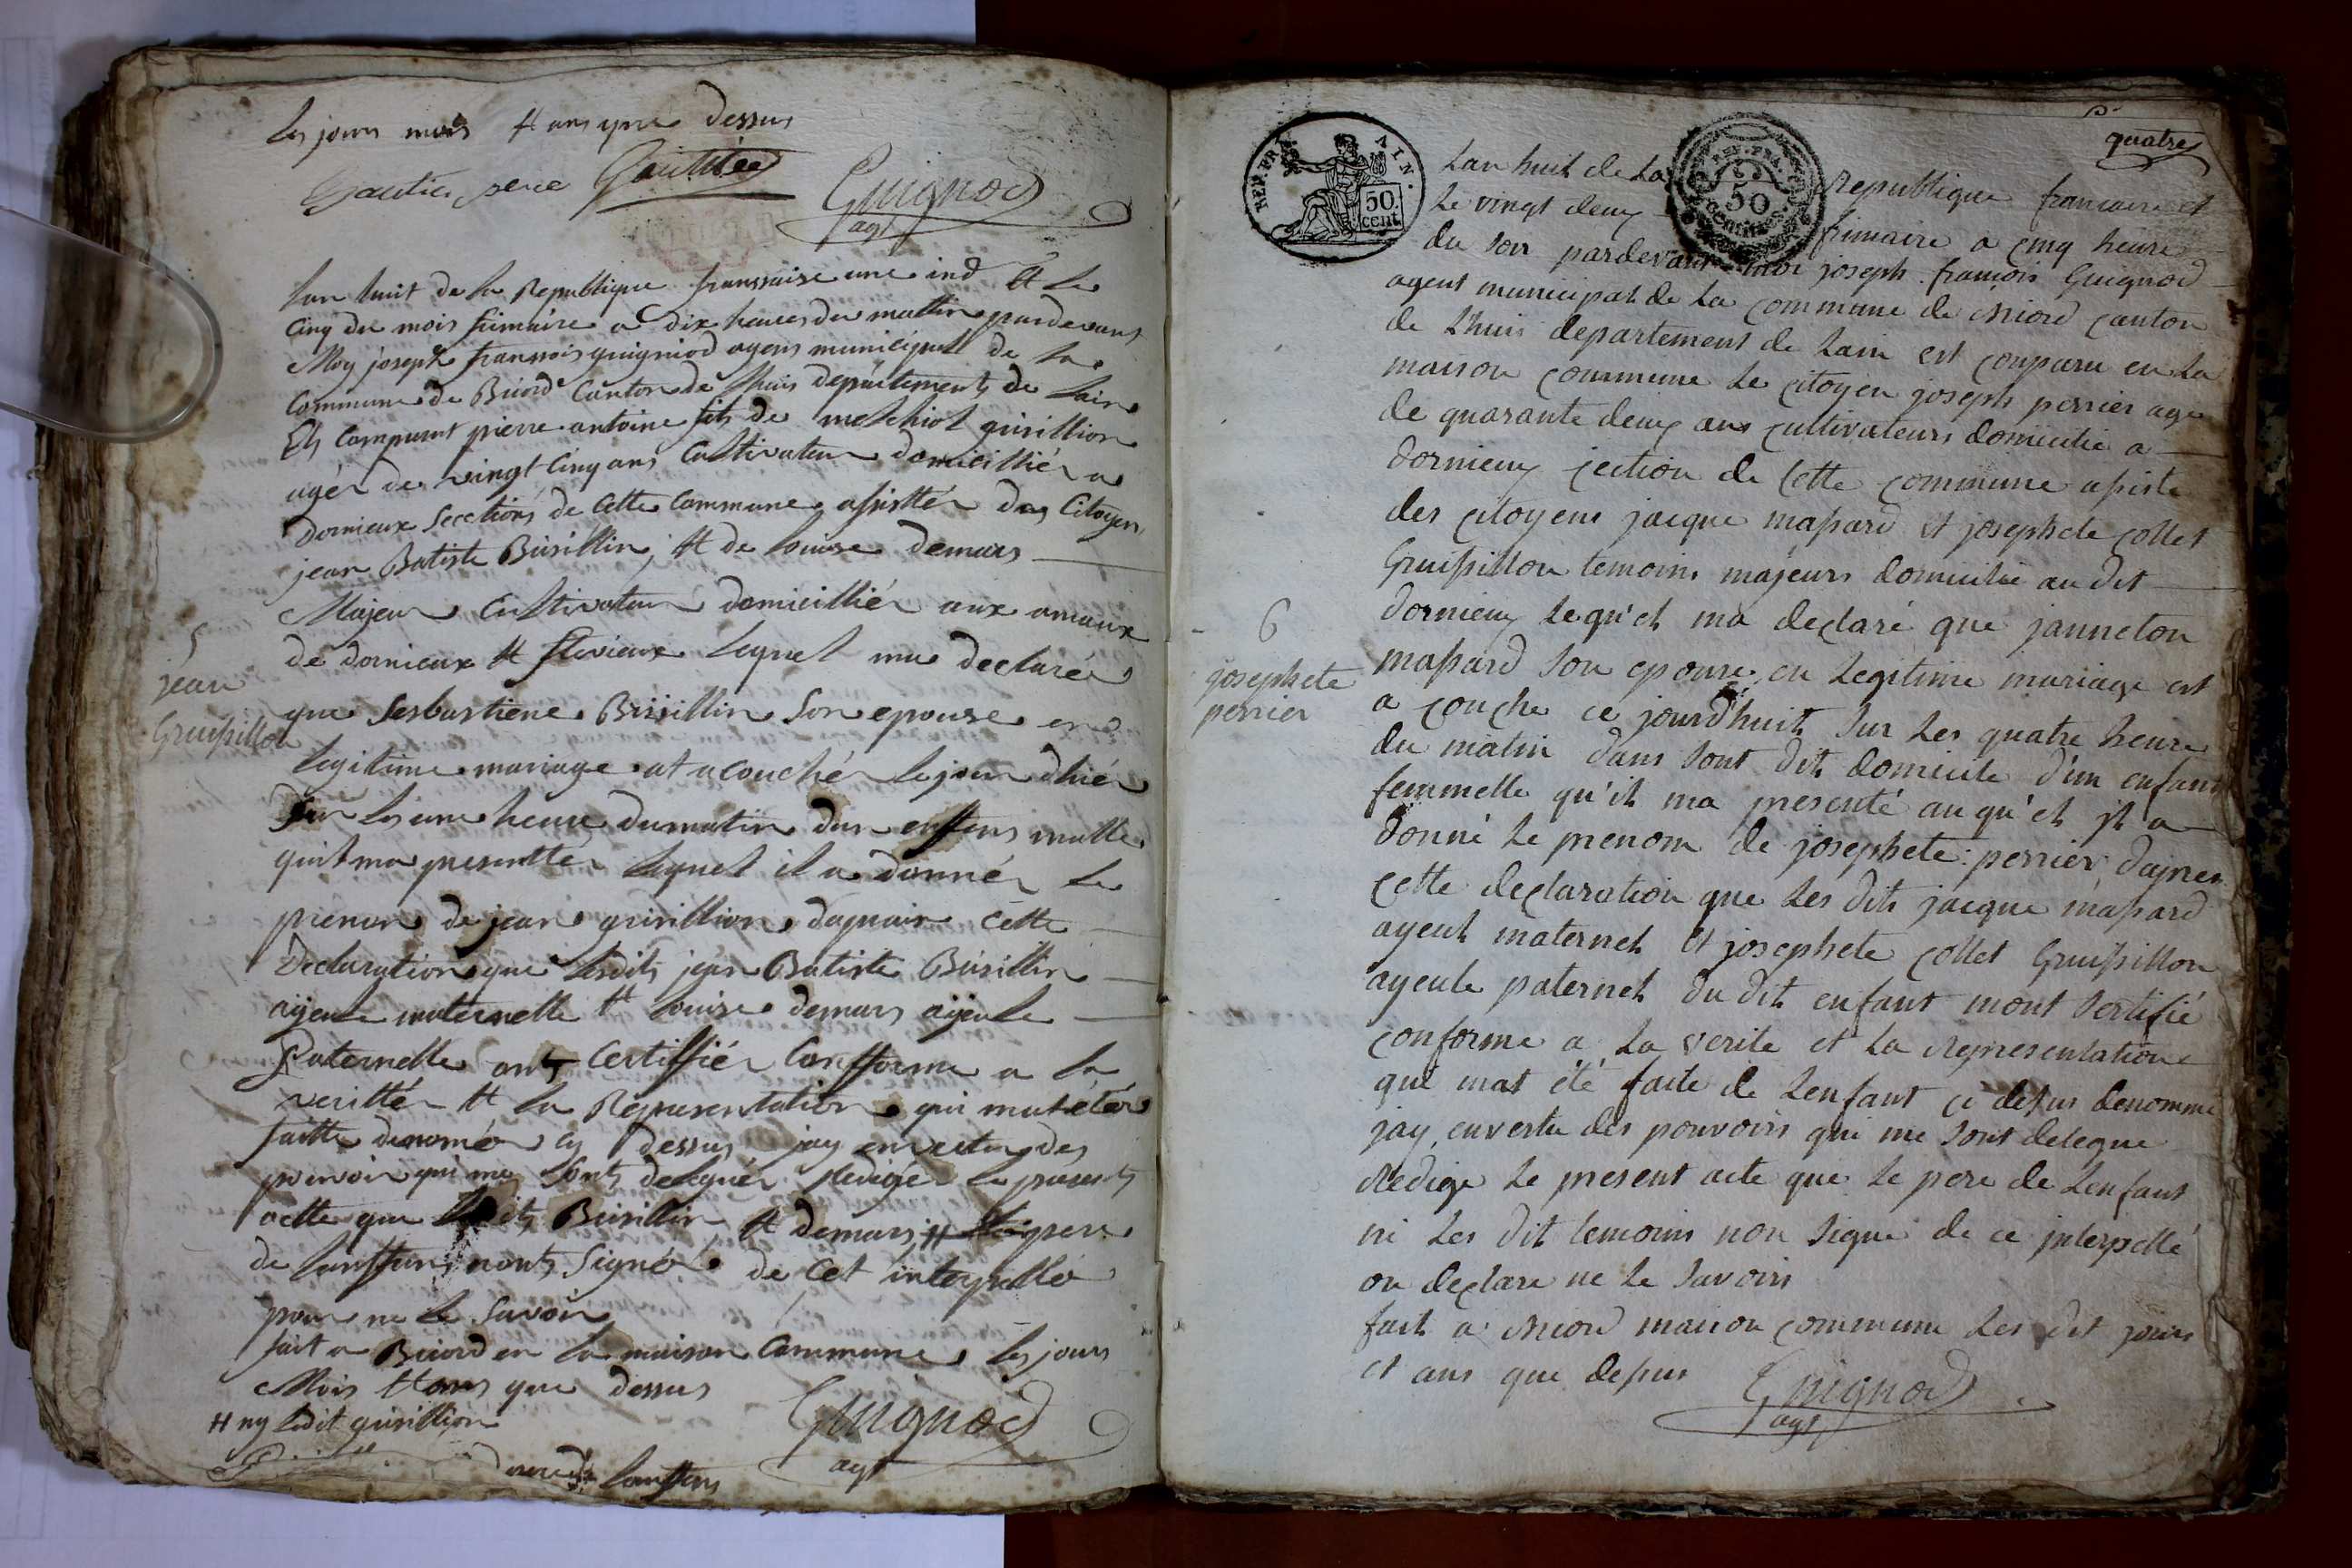 les jours mois et ans que dessus
Gautier pere Gautier
Guignod
agt
lan huit de la Republique franssaise une ind et le
cinq du mois frimaire a dix heures du mattin pardevans
Moy joseph franssois guigniod agens municipal de la
Commune de Briord Canton de lhuis departements de lain
Ets comparut pierre antoine fits de melchiol grisillion
agér de vingt cinq ans Cultivateur domicilliér a
dornieux sections de cette commune assistér des Citoyen
jean Batiste Brisillin, et de louise demars
Majeur Cultivateur domicilliér aux amaux
de dornieux et flevieux lequel ma declarér
que sesbastiene Brisillin son epouse en
legitime mariage at acouchér le jour dhiér
sur les une heure du matin dun enffens malle
quit ma presenttér lequel il a donnér le
prenon de jean grisillion dapraix cette
Declaration que lesdits jean Batiste Brisillin
aÿeule maternelle et louise demars aÿeule
Paternelle onts certiffiér Confforme a la
verittér et la Representation qui mat étér
faitte denomé cy dessus jay en vertu des
pouvoir qui me sonts deleguér Redigér le présents
actte que Brisillin et demars H pere
de lanffans nonts signé de cet interpellé
pour ne le savoir
fait a Briord en la maison Commune les jours
Mois et ans que dessus
H ny ledit grisillion
lanffans
Guignod
agt
5
jean
Gruissillon
quatre
REP. FRA.
AIN.
50
cent
REP. FRA.
50
CENTIMES
Lan huit de La Republique francaise et
Le vingt deux frimaire a cinq heure
du soir pardevant moi joseph francois Guignod
agent municipal de La commune de Briord canton
de Lhuis departement de Lain est comparu en La
maison commune Le citoyen joseph perrier age
de quarante deux ans cultivateurs domicilié a
dornieux cection de Cette commune assiste
des citoyens jacque massard et josephete collet
Gruissillon temoins majeurs domicilié au dit
dornieux Lequ'el ma declaré que janneton
massard son epouse en Legitime mariage est
a couche ce jourd'huit sur Les quatre heure
du matin dans sont dit domicile d'un enfant
femmelle qu'il ma presenté au qu'el jl a
donné Le prenom de josephete perrier dapres
cette declaration que Les dits jacque massard
ayeul maternel et josephete collet Gruissillon
ayeule paternel du dit enfant mont sertifié
conforme a La verite et La Representation
qui mat été faite de Lenfant ci dessus denomme
jay envertu des pouvoirs qui me sont delegue
Redige Le present acte que Le pere de Lenfant
ni Les dit temoins non signé de ce jnterpellé
on declare ne Le savoirs
fait a Briord maison commune Les dit jours
et ans que dessus
Guignod
agt
6
josephete
perrier